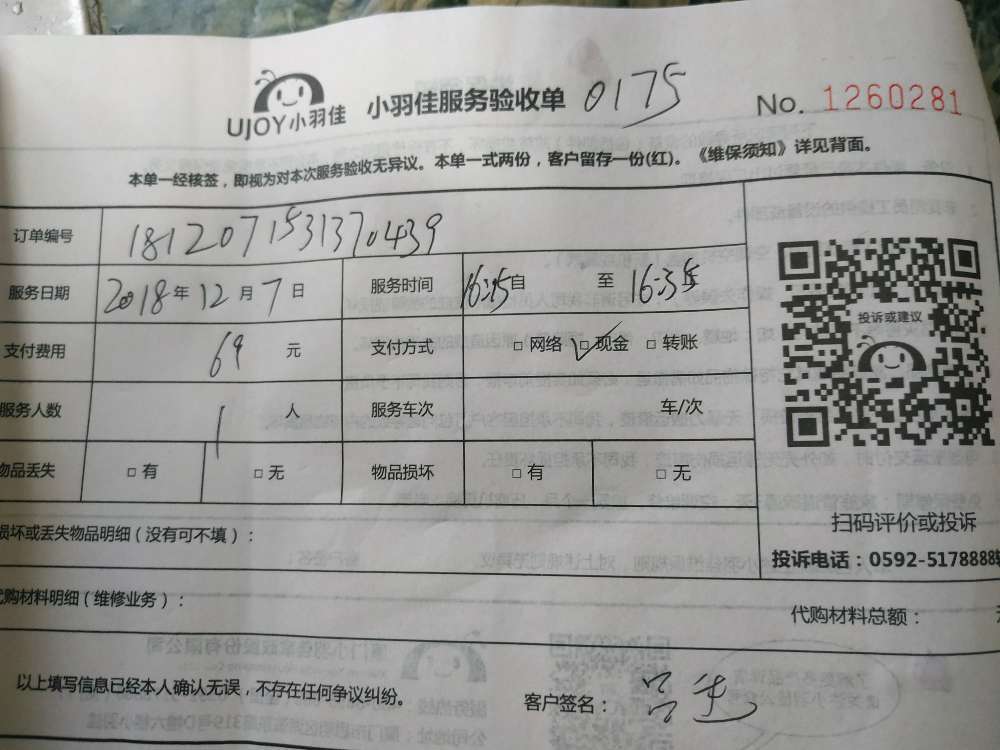 UJOY小羽佳 小羽佳服务验收单 0175 No. 1260281
本单一经核签，即视为对本次服务验收无异议。本单一式两份，客户留存一份(红)。《维保须知》详见背面。
订单编号 1812071531370439
服务日期 2018年12月7日 服务时间 16:15自 至 16:35
支付费用 69 元 支付方式 □ 网络 □ 现金 □ 转账
服务人数 1 人 服务车次 车/次
物品丢失 □ 有 □ 无 物品损坏 □ 有 □ 无
投诉或建议
扫码评价或投诉
投诉电话：0592-5178888
损坏或丢失物品明细（没有可不填）：
代购材料明细（维修业务）：
代购材料总额：
以上填写信息已经本人确认无误，不存在任何争议纠纷。 客户签名：